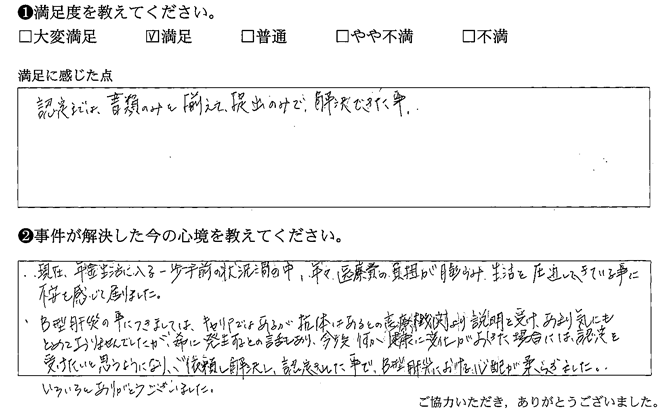 ❶満足度を教えてください。
□大変満足 ☑満足 □普通 □やや不満 □不満
満足に感じた点
認定までは、書類のみを揃えて、提出のみで、解決できた事。
❷事件が解決した今の心境を教えてください。
・現在、年金生活に入る一歩手前の状況渦の中、年々、医療費の負担が膨らみ、生活を圧迫してきている事に
不安を感じて居りました。
・B型肝炎の事につきましては、キャリアではあるが抗体はあるとの医療機関より説明を受け、あまり気にも
とめておりませんでしたが、希に発生するとの話もあり、今後何か健康に変化がおきた場合には、認定を
受けたいと思うようになり、ご依頼し解決し、認定されした事で、B型肝炎における心配が柔らぎました。
いろいろとありがとうございました。
ご協力いただき，ありがとうございました。